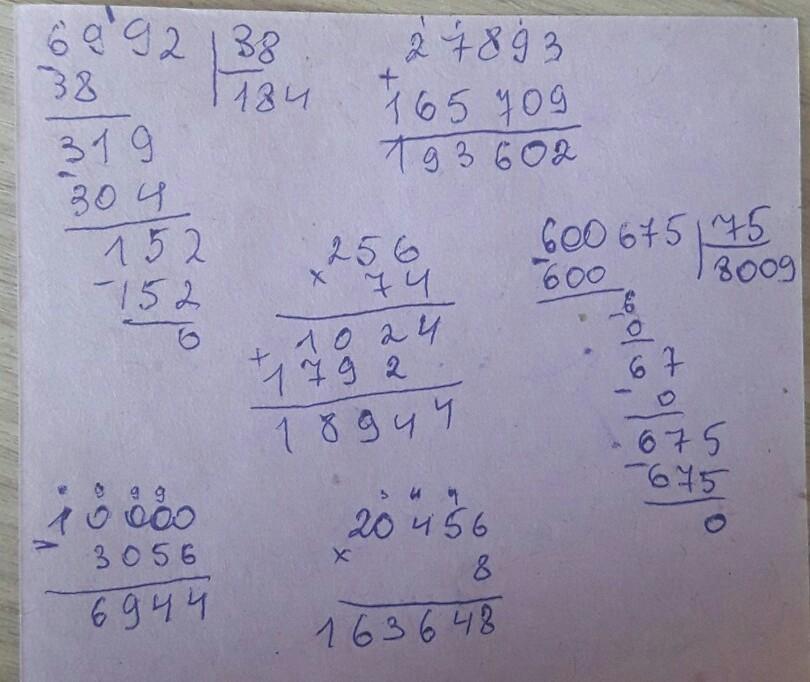 6992 38
- 38 184
319
- 304
152
- 152
0
27893
+ 165 709
193 602
256
× 74
1024
+ 1792
18944
600675 75
- 600 8009
6
- 0
67
- 0
675
- 675
0
10000
- 3056
6944
20456
× 8
163648